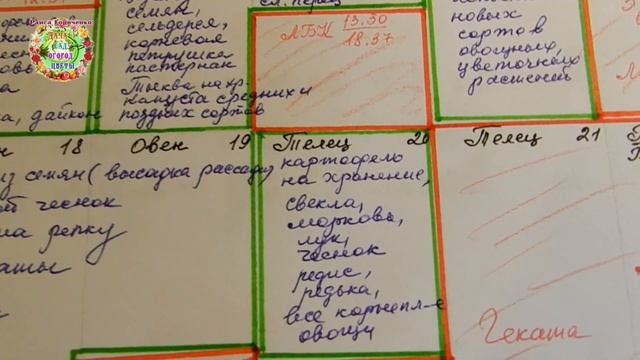 Раиса Горяченко
ДАЧА
САД
ОГОРОД
ЦВЕТЫ
семян,
сельдерея,
корневая
петрушка
пастернак
Тыква на хр.
капуста средних и
поздних сортов
а, дайкон
сл. перец
ЛБК 13.30
18.37
новых
сортов
овощных,
цветочных
растений
18
Овен 19
из семян (высадка рассады)
чеснок
на репку
Телец 20
картофель
на хранение,
свекла,
морковь,
лук,
чеснок
редис,
редька,
все корнепл-е
овощи
Телец 21
Геката